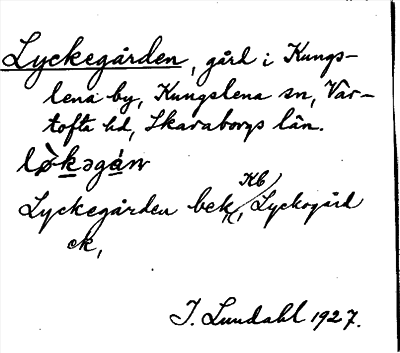 Lyckegården, gård i Kungs-
lena by, Kungslena sn, Var-
tofta hd, Skaraborgs län.
Lyckegården bek, Kb Lyckogård
ek,
I. Lundahl 1927.